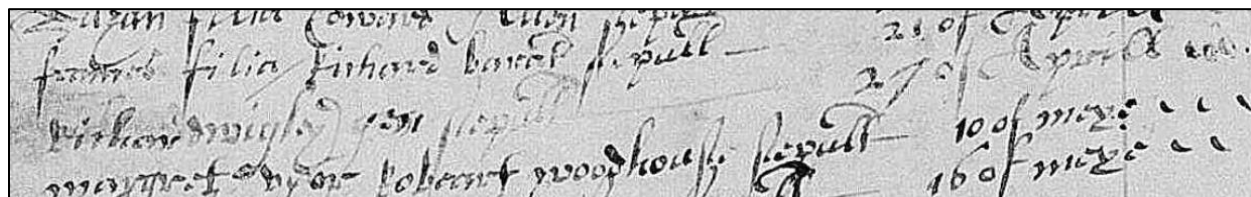 Suzan filia Edward Allen sepult 21 of Aprill
frances filia Richard barcet sepult 27 of Aprill
Richard wigley gen sepult 10 of meye
margret uxor Robeart woodhouse sepult 16 of meye